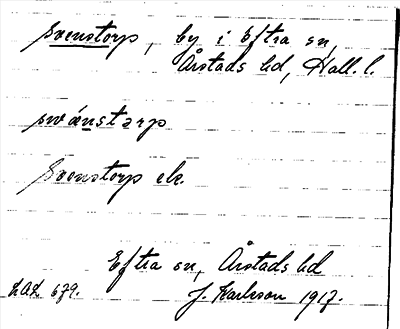 Svenstorp, by i Eftra sn,
Årstads hd, Hall. l.
swánstərp
Svenstorp etc.
Eftra sn, Årstads hd
LAL 679. J. Karlsson 1917.